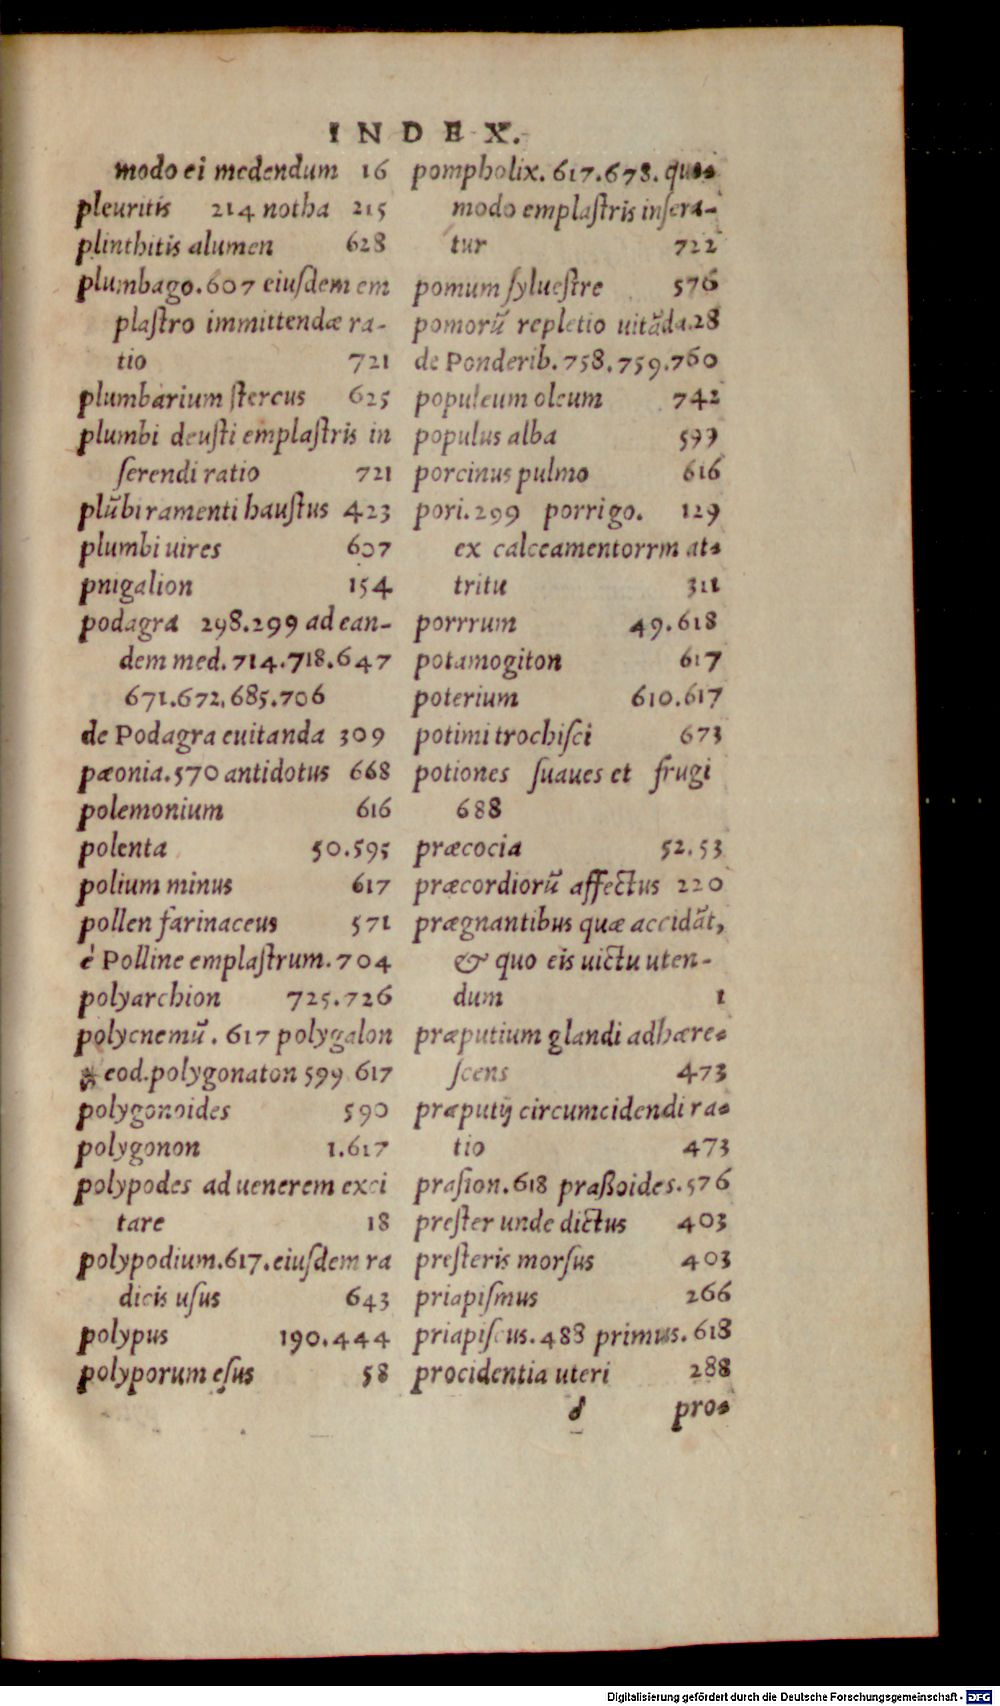 INDEX.
modo ei medendum 16
pleuritis 214 notha 215
plinthitis alumen 628
plumbago. 607 eiuſdem em
plaſtro immittendæ ra-
tio 721
plumbarium ſtercus 625
plumbi deuſti emplaſtris in
ſerendi ratio 721
plūbi ramenti hauſtus 423
plumbi uires 607
pnigalion 154
podagra 298.299 ad ean-
dem med. 714.718.647
671.672.685.706
de Podagra euitanda 309
pæonia. 570 antidotus 668
polemonium 616
polenta 50.595
polium minus 617
pollen farinaceus 571
è Polline emplaſtrum. 704
polyarchion 725.726
polycnemū. 617 polygalon
eod. polygonaton 599 617
polygonoides 590
polygonon 1.617
polypodes ad uenerem exci
tare 18
polypodium. 617. eiuſdem ra
dicis uſus 643
polypus 190.444
polyporum eſus 58
pompholix. 617.678. quo-
modo emplaſtris inſera-
tur 722
pomum ſylueſtre 576
pomorū repletio uitāda. 28
de Ponderib. 758.759.760
populeum oleum 742
populus alba 599
porcinus pulmo 616
pori. 299 porrigo. 129
ex calceamentorrm at-
tritu 311
porrrum 49.618
potamogiton 617
poterium 610.617
potimi trochiſci 673
potiones ſuaues et frugi
688
præcocia 52.53
præcordiorū affectus 220
prægnantibus quæ accidāt,
& quo eis uictu uten-
dum 1
præputium glandi adhære-
ſcens 473
præputij circumcidendi ra-
tio 473
praſion. 618 praßoides. 576
preſter unde dictus 403
preſteris morſus 403
priapiſmus 266
priapiſcus. 488 primus. 618
procidentia uteri 288
d pro-
Digitalisierung gefördert durch die Deutsche Forschungsgemeinschaft - DFG